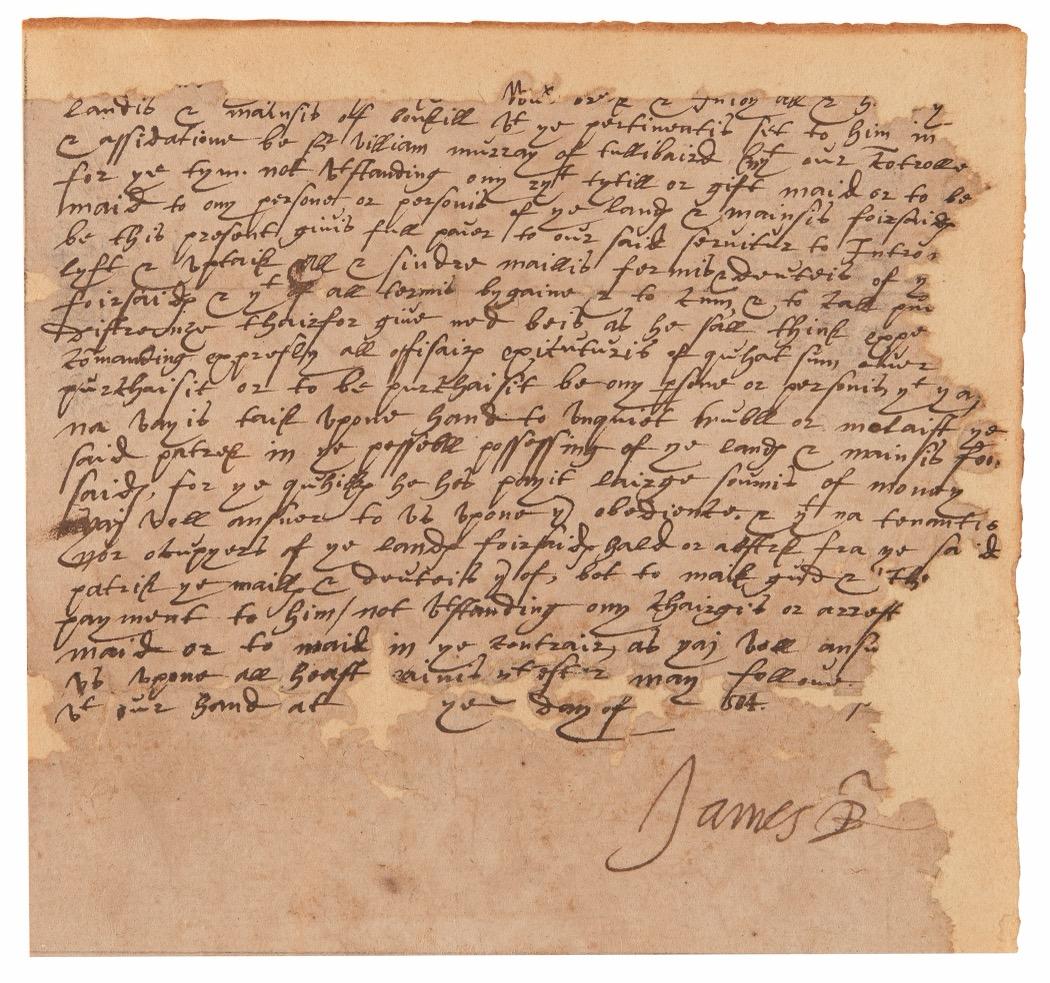 landis & mainsis off
& assidatione be Sr villiam murray of tullibaird knyt our
for ye tym. not vtstanding ony tytill or gift maid or to be
maid to ony persone or personis of ye landis & mainsis foirsaidis
be this present givis full pover to our said servitur to
lyft & vptaik all & sindre maillis fermis & deuteis of
foirsaidis & yt of all termis bygaine & to cum & to call
thairfor give ned beis as he sall think expe
comanding expressly all offisairis of quhat sum ever
purchaisit or to be purchaisit be ony psone or personis yt yaj
na vayis taik vpone hand to vnquiet trubll or molaist ye
said patrik in ye possessing of ye landis & mainsis foir
saidis, for ye quhilkis he hes payit lairge soumis of money
vaj vell ansuer to vs vpone obedience. & yt na tenantis
nor ocupyers of ye landis foirsaidis hald or fra ye said
patrik ye maillis & deuteis yrof, bot to maik gud &
payment to him / not vtstanding ony chairgis or arrest
maid or to maid in ye contrair, as yaj vell ansu
vs vpone all heast may follow
vt our hand at ye day of
James R